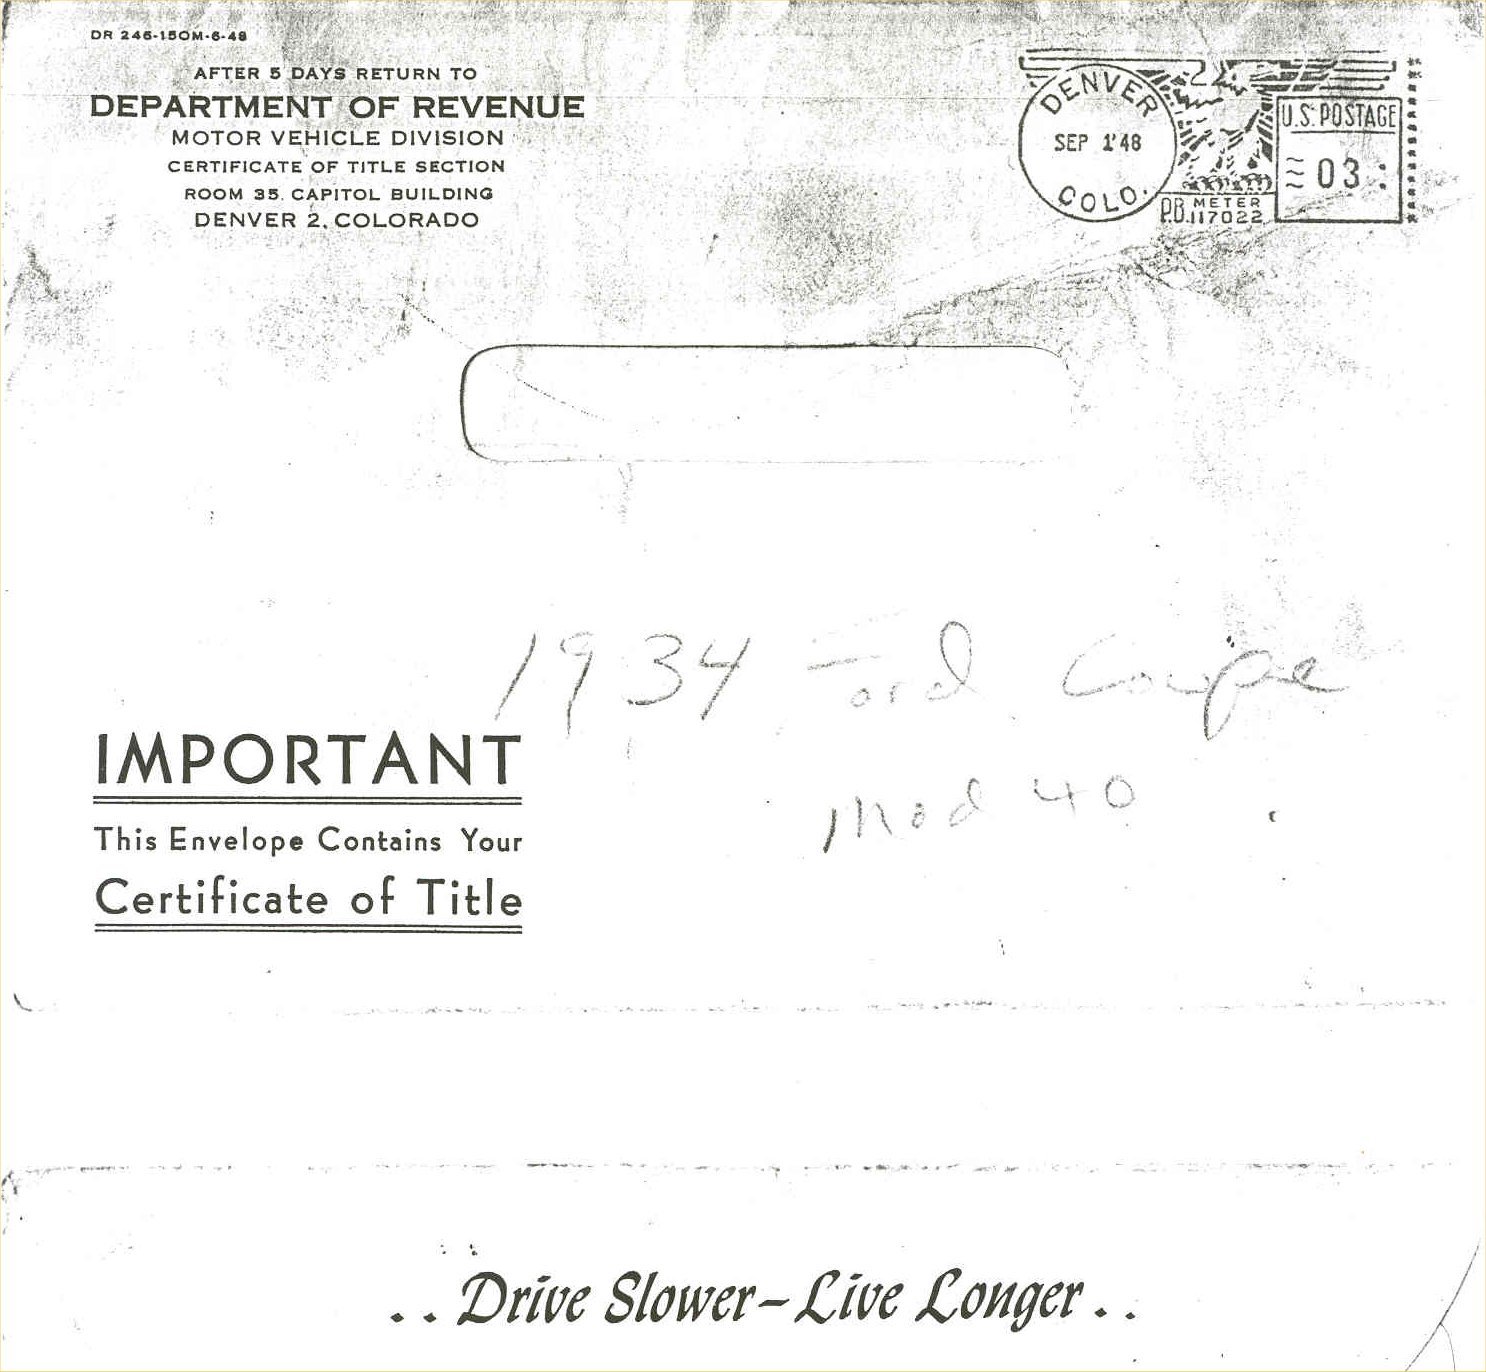 DR 246-150M-6-48
AFTER 5 DAYS RETURN TO
DEPARTMENT OF REVENUE
MOTOR VEHICLE DIVISION
CERTIFICATE OF TITLE SECTION
ROOM 35, CAPITOL BUILDING
DENVER 2, COLORADO
DENVER
SEP 1'48
COLO.
U.S. POSTAGE
03
P.B. METER
117022
1934 Ford Coupe
Mod 40
IMPORTANT
This Envelope Contains Your
Certificate of Title
.. Drive Slower – Live Longer ..